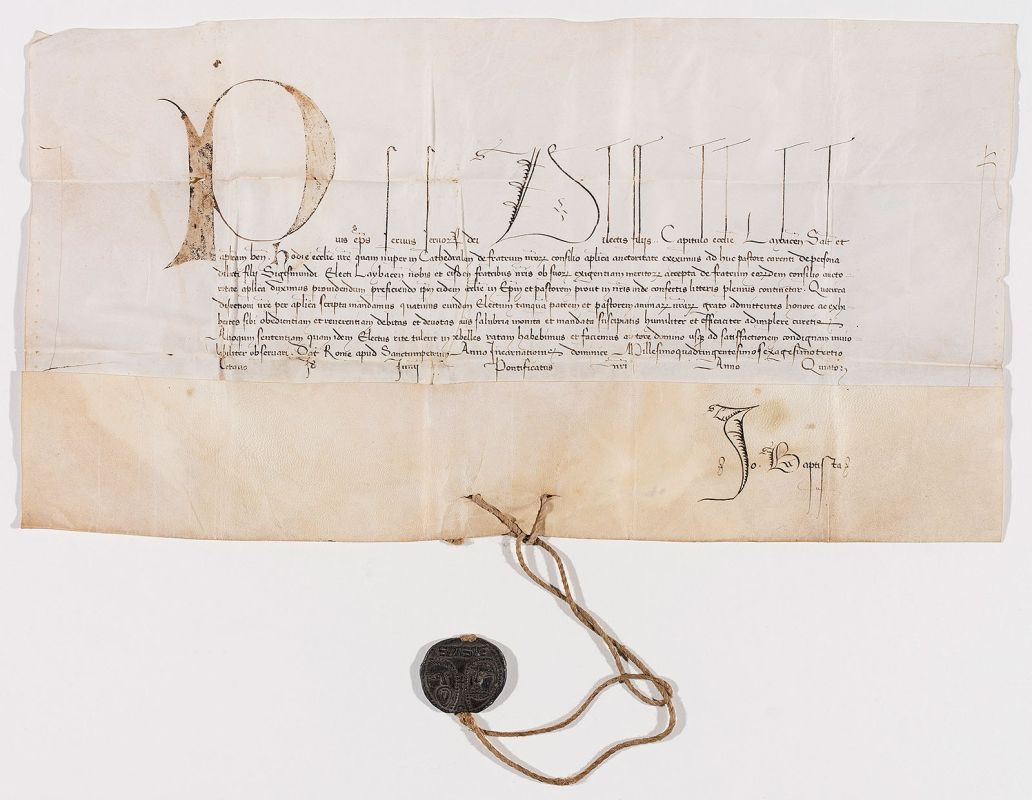 Pius eps servus servorꝫ dei Dilectis filijs Capitulo ecclie Laybaceñ Salt et
aplicam beñ. Hodie ecclie vre quam nuper in Cathedralem de fratrum nrorꝫ consilio aplica auctoritate ereximus ad huc pastore carenti de persona
dilecti filij Sigismundi Electi Laybaceñ nobis et eisdem fratribus nris ob suorꝫ exigentiam meritorꝫ accepta de fratrum eordem consilio aucto
ritate aplica duximus providendum preficiendo ipm eidem ecclie in Epm et pastorem prout in nris inde confectis litteris plenius continetur. Quocirca
discretioni vre per aplica scripta mandamus quatinus eundem Electum tanqua patrem et pastorem animarꝫ vrarꝫ grato admittentes honore ac exhi
bentes sibi obedientiam et reverentiam debitas et devotas eius salubria monita et mandata suscipiatis humiliter et efficaciter adimplere curetis
Alioquin sententiam quam idem Electus rite tulerit in rebelles ratam habebimus et faciemus auctore domino usqꝫ ad satisfactionem condignam invio
labiliter observari. Dat Rome apud Sanctumpetrum Anno Incarnationis dominice Millesimoquadringentesimosexagesimotertio
Id Junij Pontificatus nri Anno Quinto
Jo. Baptista